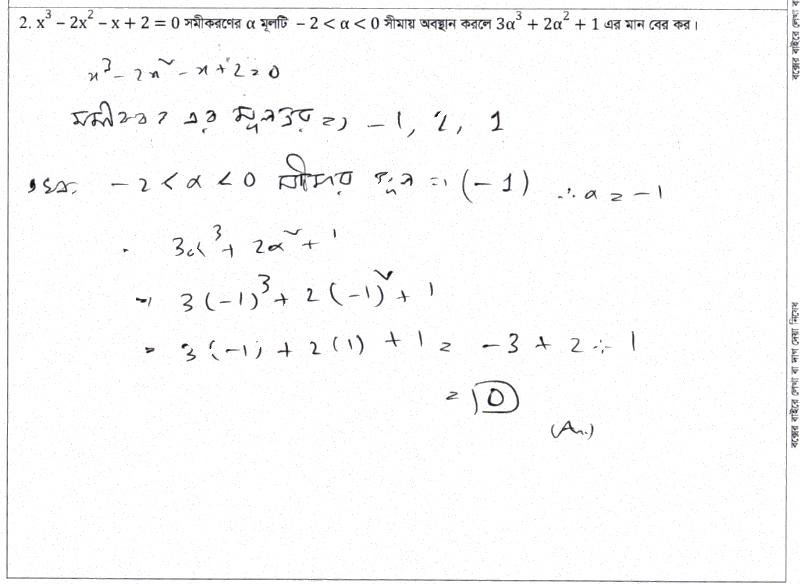 2. x³ − 2x² − x + 2 = 0 সমীকরণের α মূলটি − 2 < α < 0 সীমায় অবস্থান করলে 3α³ + 2α² + 1 এর মান বের কর।
x³ − 2x² − x + 2 = 0
সমীকরণ এর মূলত্রয় => −1, 2, 1
−2 < α < 0 সীমায় মূল = (−1) ∴ α = −1
3α³ + 2α² + 1
= 3(−1)³ + 2(−1)² + 1
= 3(−1) + 2(1) + 1 = −3 + 2 + 1
= 0
(An.)
বক্সের বাইরে লেখা বা দাগ দেয়া নিষেধ